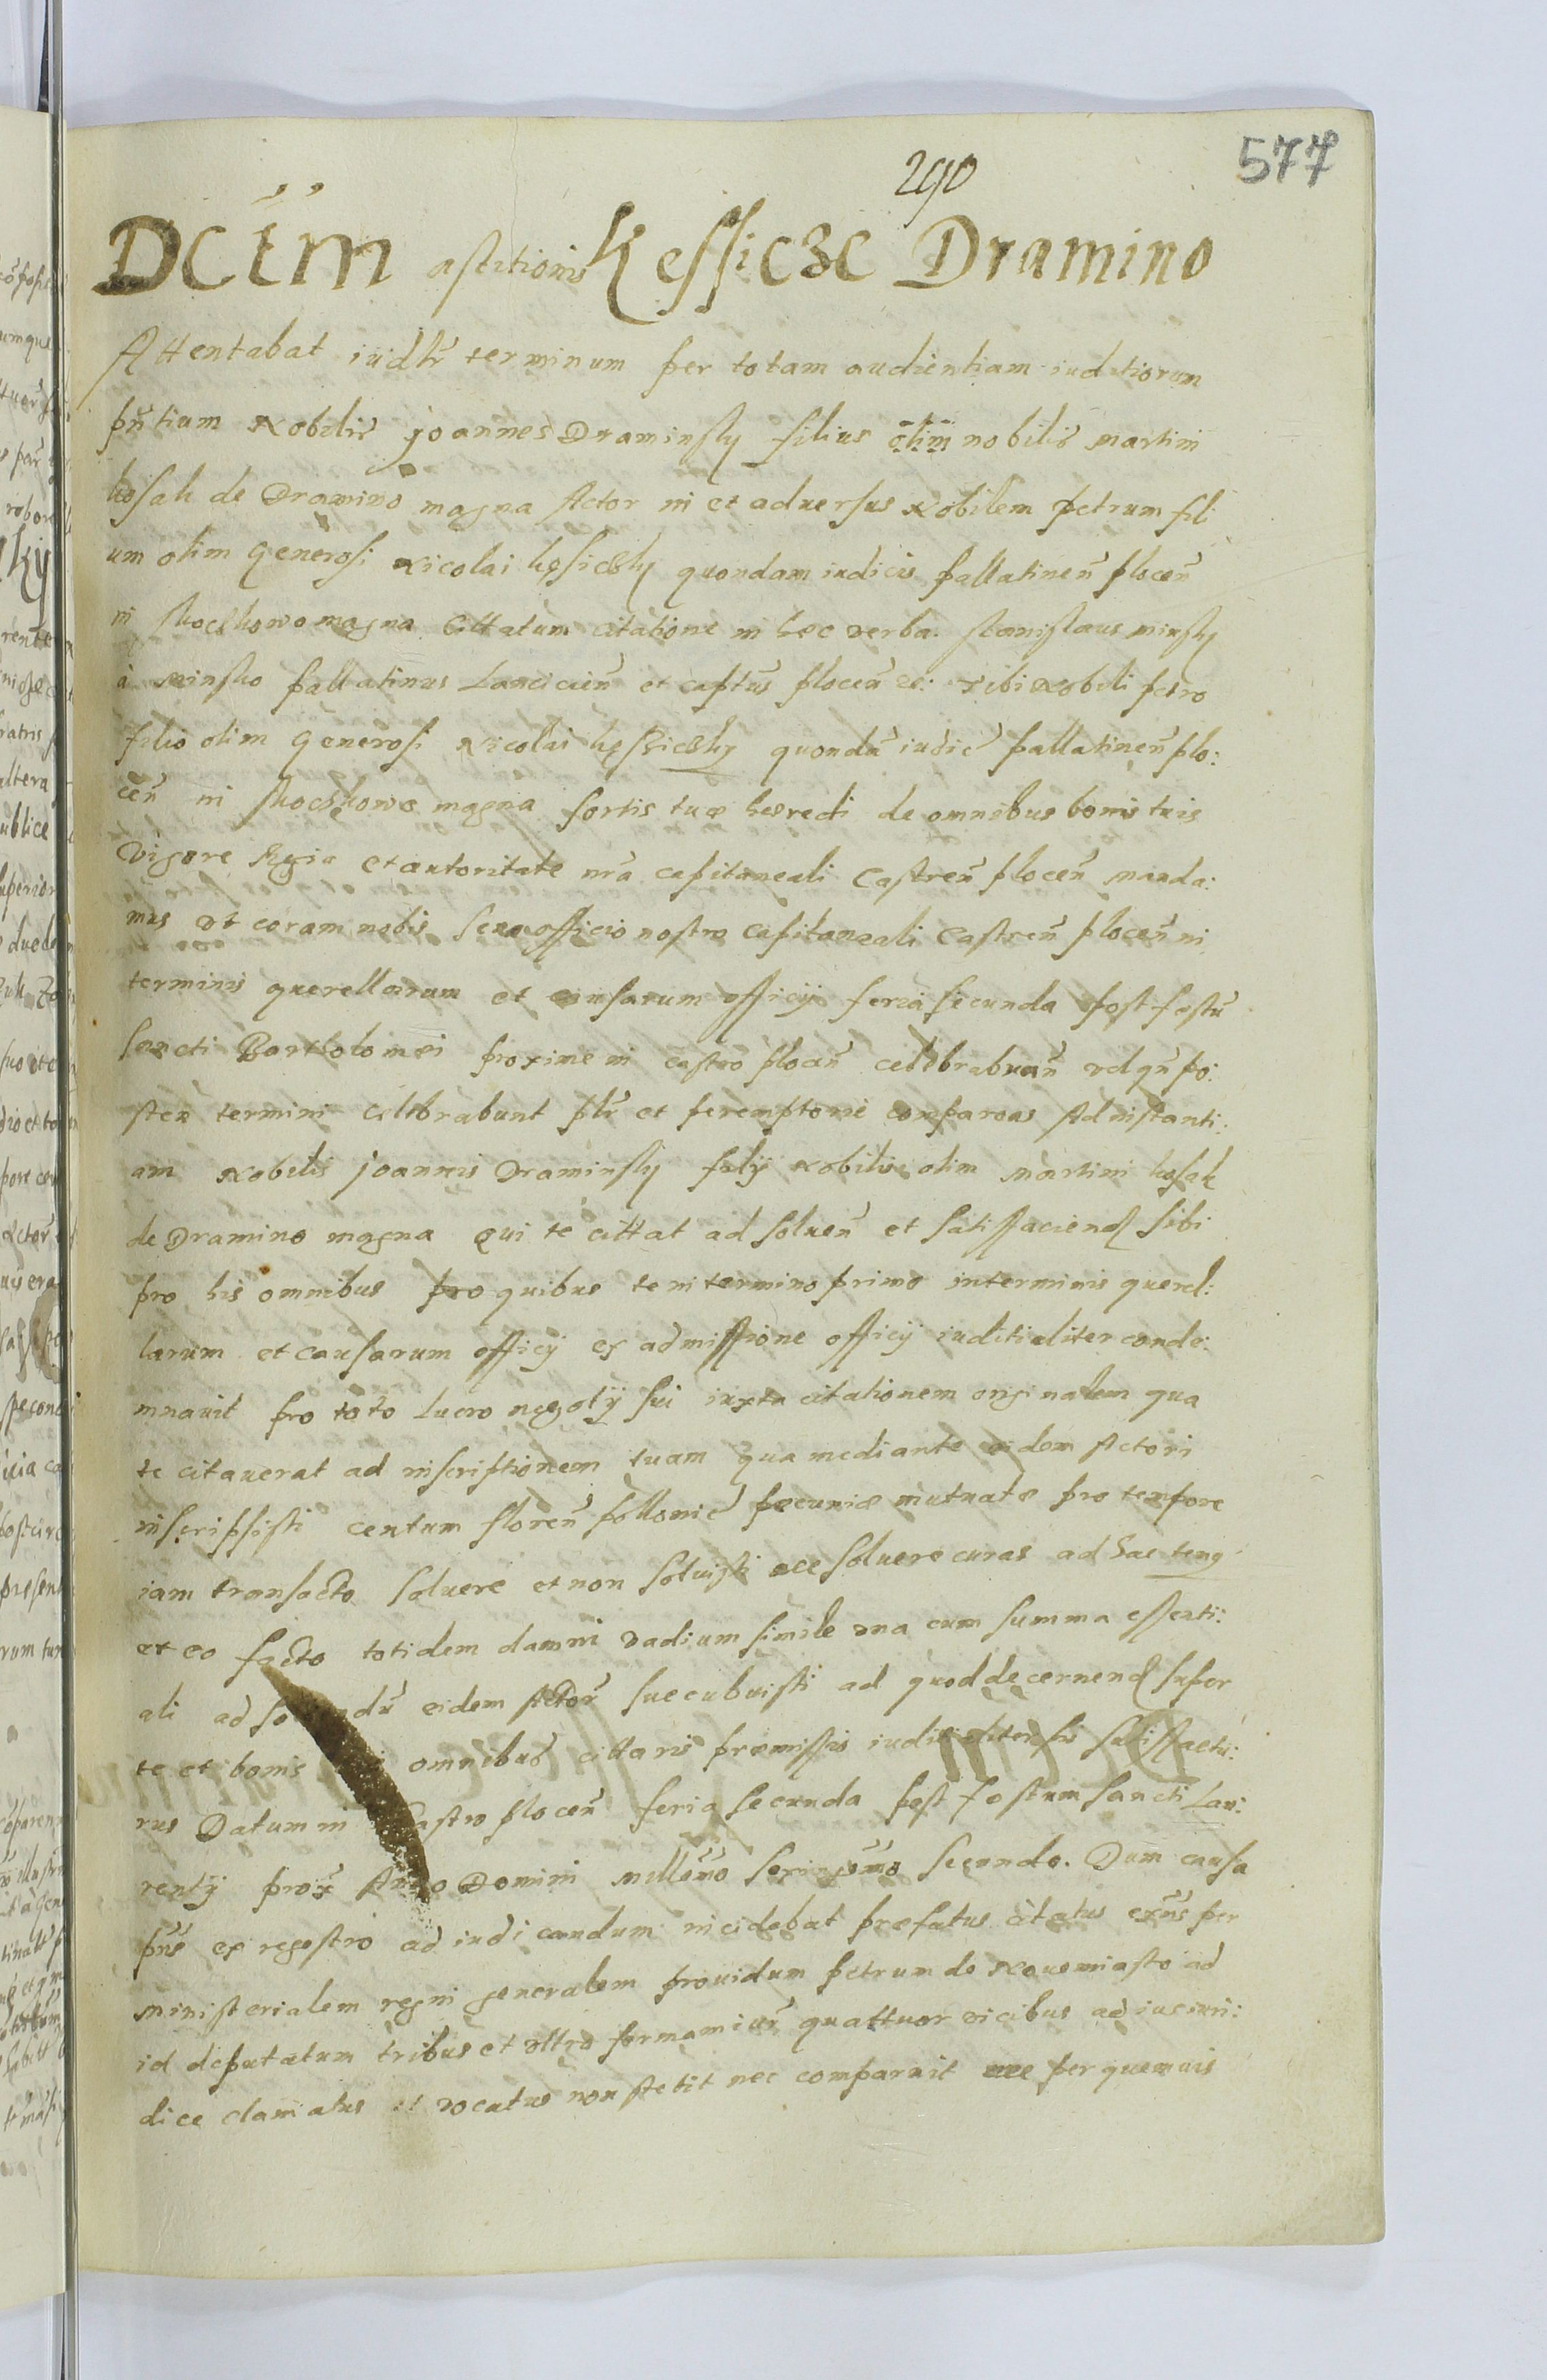 577
290
DCtm astitionis Kessicze Dramino
Attentabat iudlr terminum per totam audientiam iuditiorum
pntium Nobilis Joannes Draminsky filius olim nobilis Martini
kosak de Dramino magna Actor in et aduersus Nobilem Petrum fili
um olim Generosi Nicolai kęsiczky quondam iudicis pallatinen plocen
in magna Cittatum citatione in hec verba. Stanislaus minsky
à Minsko pallatinus Lancicien et captus plocen etc: Tibi Nobili petro
filio olim Generosi Nicolai kęssiczky quondā iudic pallatinen plo:
cen in magna sortis tuæ heredi de omnibus bonis tuis
Vigore Regia et autoritate nra capitaneali Castren plocen manda:
mus Vt coram nobis seu officio nostro capitaneali Castren plocen in
terminis querellarum et causarum officij feria secunda post festū
sancti Bartholomei proxime in castro plocen celebraburn vel qn po:
stea termini celebrabunt plr et peremptorie compareas Ad instanti:
am Nobilis Joannis Draminsky filij Nobilis olim Martini kosak
de Dramino magna Qui te cittat ad soluen et satisfaciend sibi
pro his omnibus pro quibus te in termino primo interminis querel:
larum et causarum officij ex admissione officij iuditialiter conde:
mnauit pro toto lucro negotij sui iuxta citationem originalem qua
te citauerat ad inscriptionem tuam qua mediante eidem Actori
inscripsisti centum floren pollonic pecuniæ mutuatæ pro tempore
iam transacto soluere et non soluisti nec soluere curas ad hac tenq
et eo facto totidem damni vadium simile vna cum summa essenti:
ali ad eidem Actori succubuisti ad quod decernend super
te et bonis omnibus cittaris præmissis iuditialiter sis satisfactu:
rus Datum in Castro plocen feria secunda post festum sancti Lau:
rentij prox Anno Domini millemo secundo. Dum causa
pns ex regestro ad iudicandum incidebat præfatus citatus exns per
ministerialem regni generalem prouidum petrum de Nouomiasto ad
id deputatum tribus et vltra formam iur quattuor vicibus ad ius iuri:
dice clamatus et vocatus non stetit nec comparuit nec per quemuis